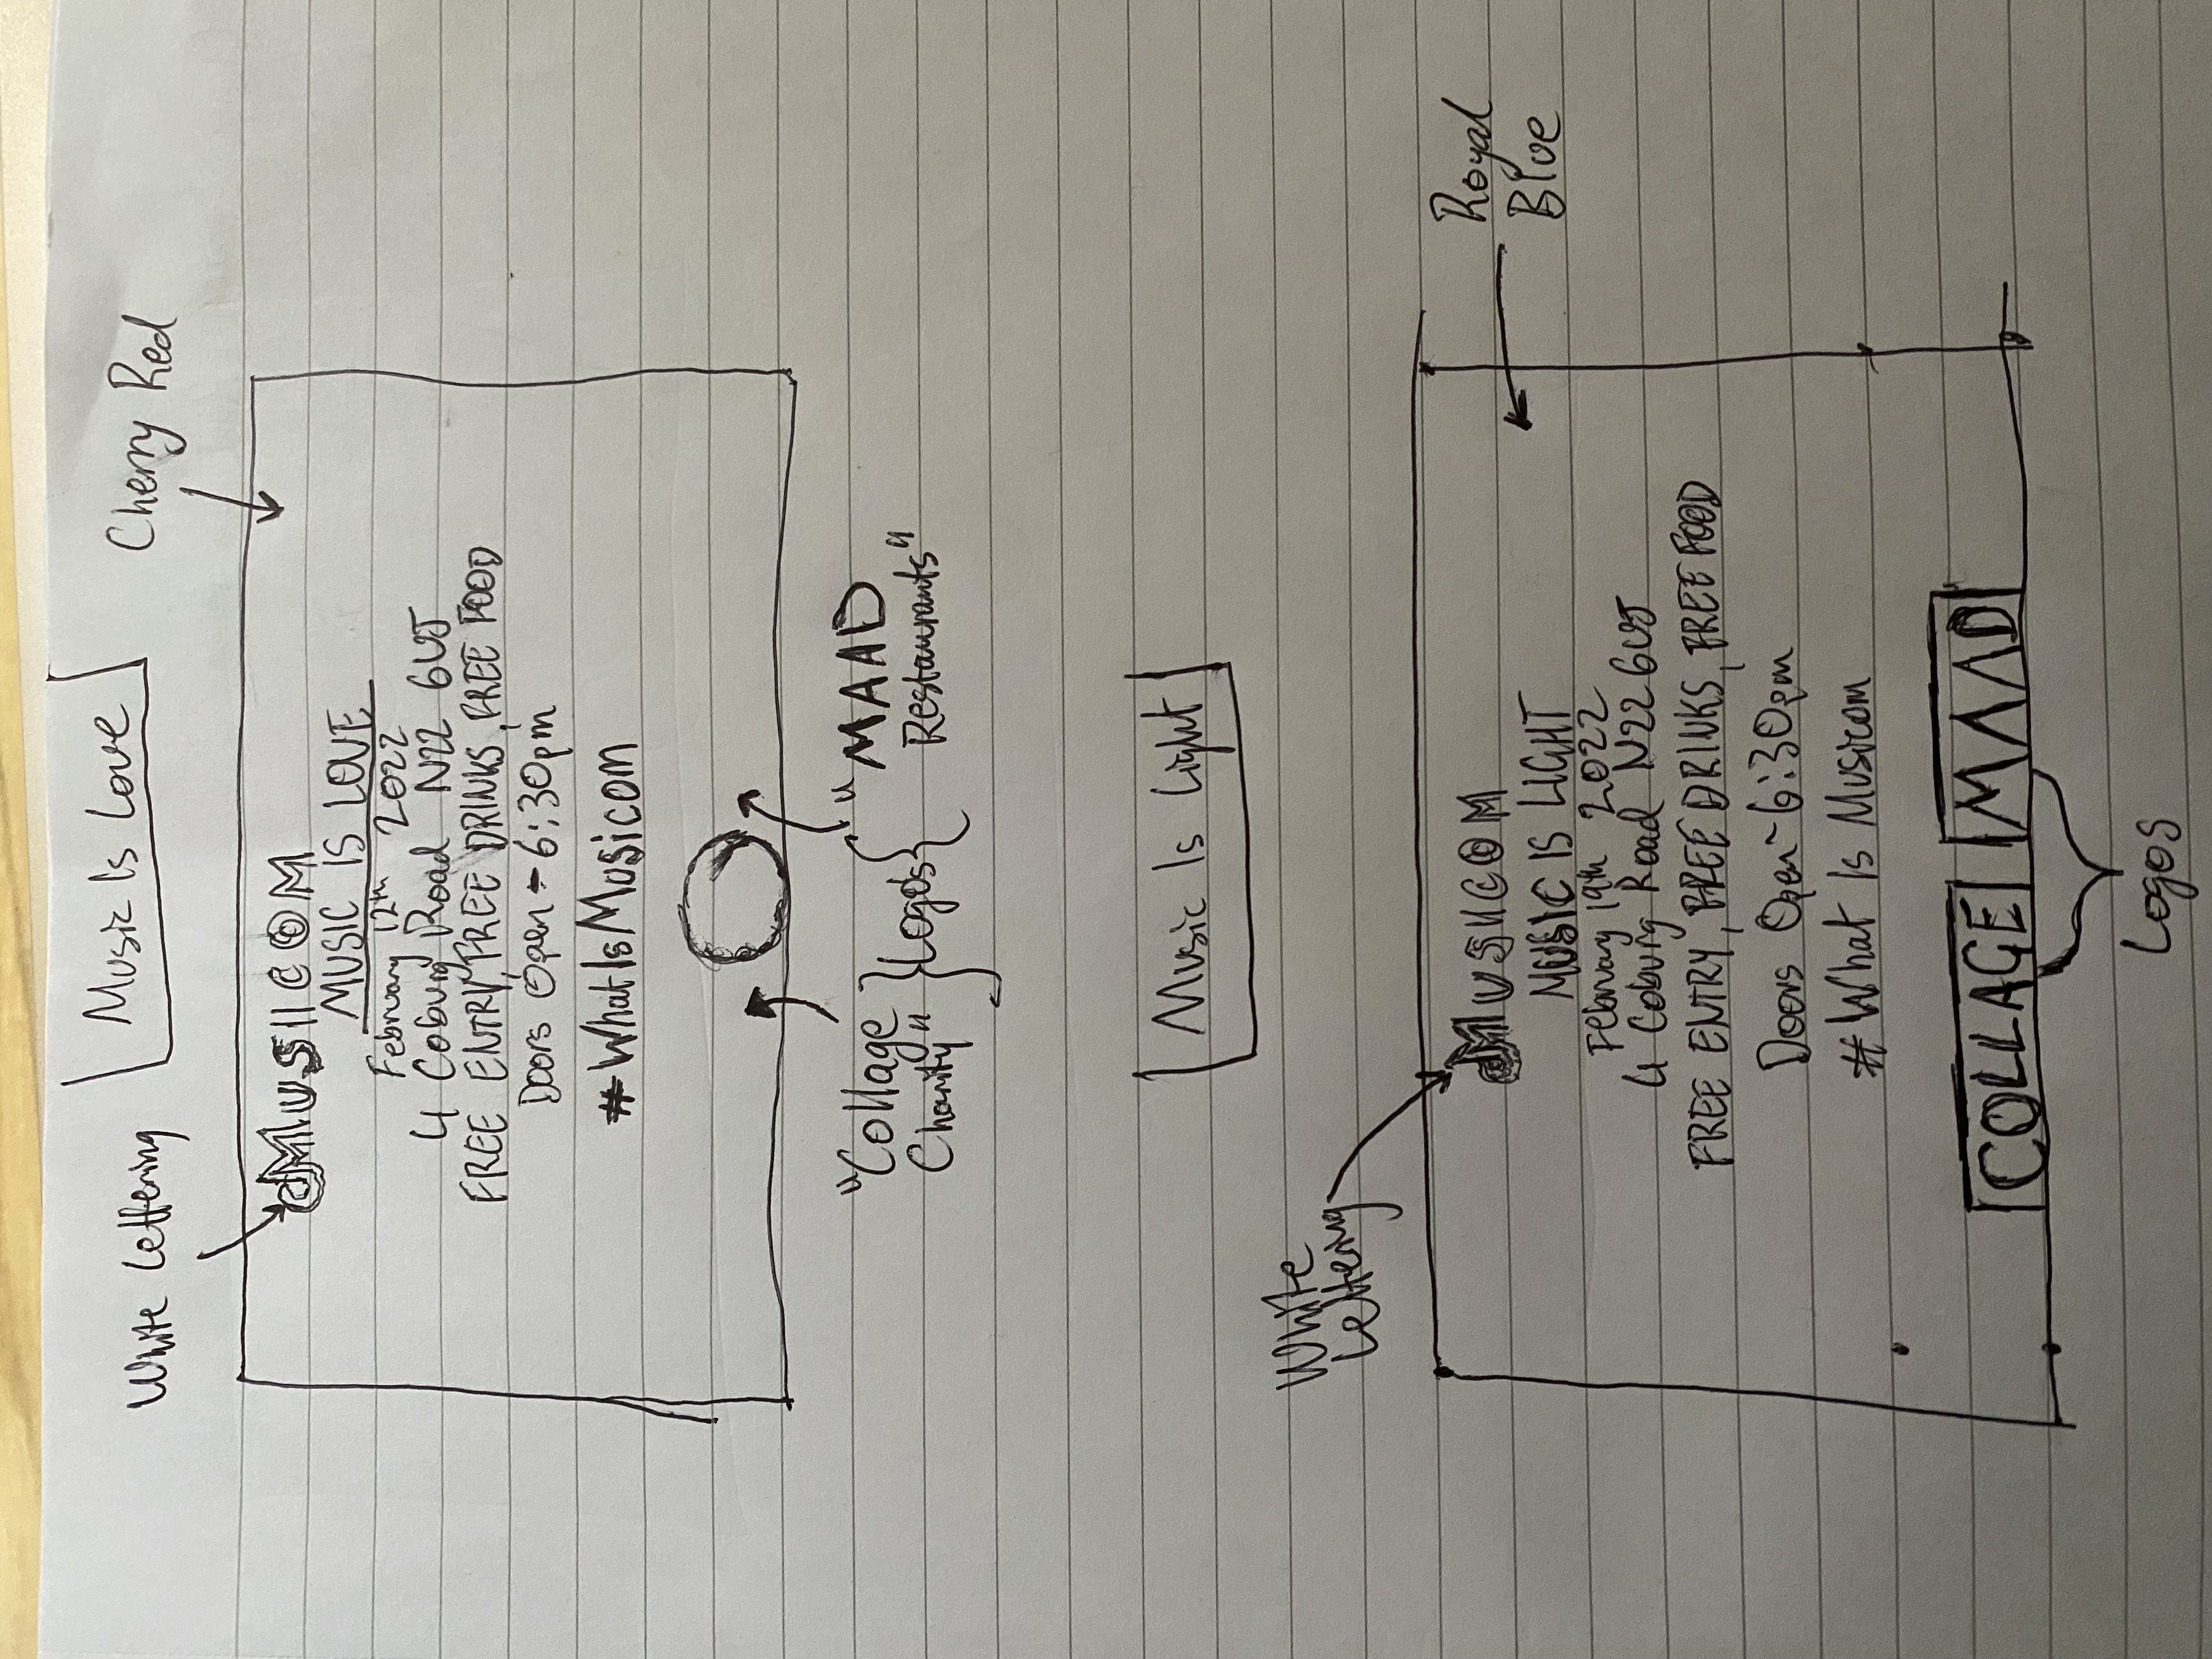 Music Is Love
White Lettering
Cherry Red
MUSICOM
MUSIC IS LOVE
February 12th 2022
4 Coburg Road N22 6UJ
FREE ENTRY, FREE DRINKS, FREE FOOD
Doors Open - 6:30pm
#WhatIsMusicom
"Collage
Charity"
Logos
"MAAD
Restaurants"
Music Is Light
White
Lettering
Royal
Blue
MUSICOM
MUSIC IS LIGHT
February 19th 2022
4 Coburg Road N22 6UJ
FREE ENTRY, FREE DRINKS, FREE FOOD
Doors Open ~ 6:30pm
#What Is Musicom
COLLAGE MAAD
Logos